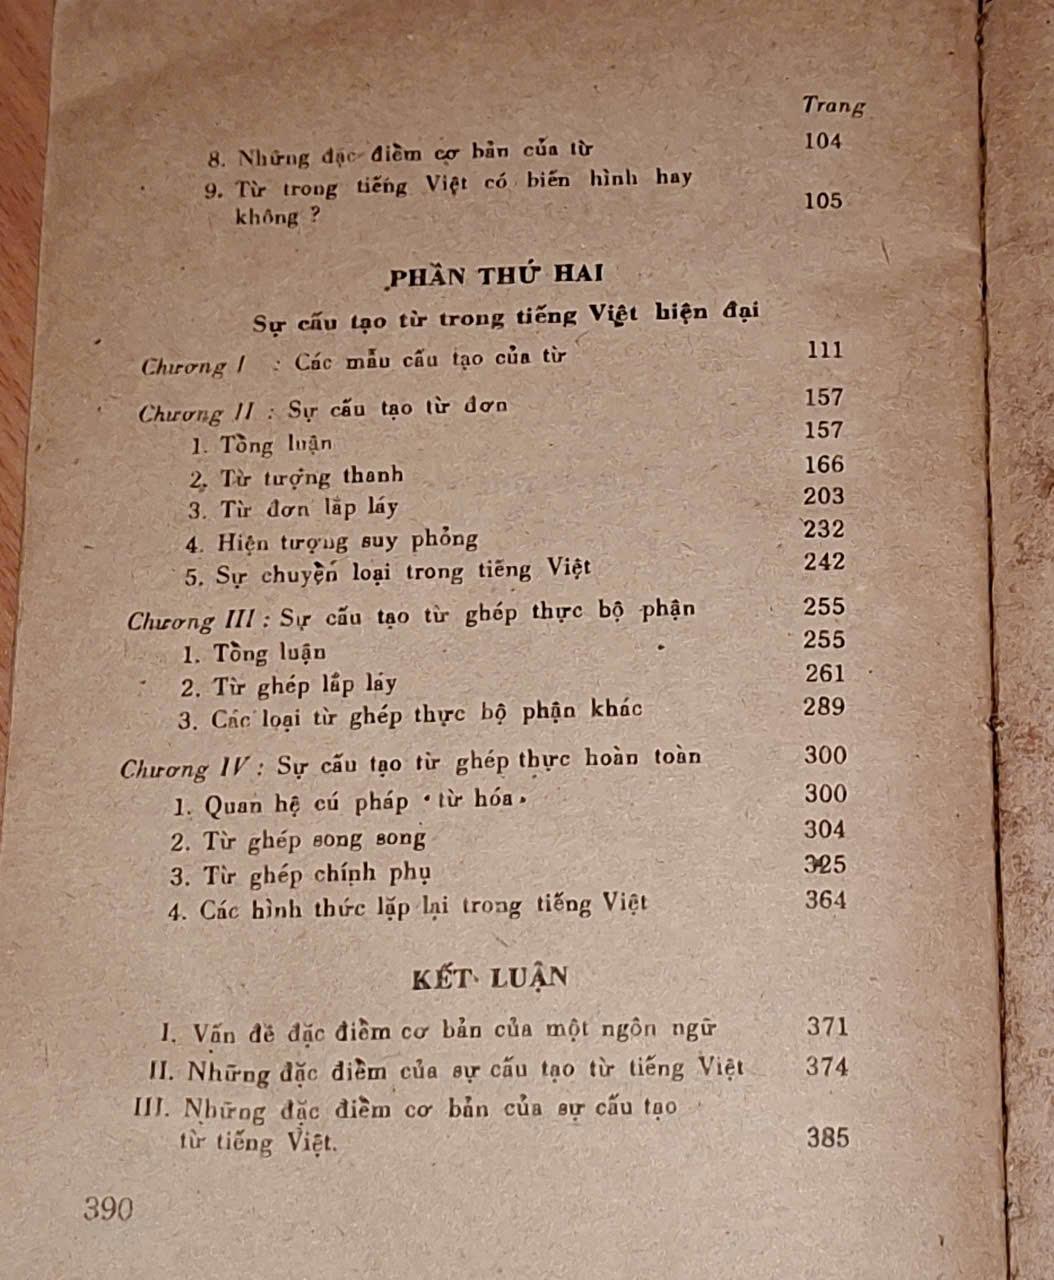 Trang
8. Những đặc điểm cơ bản của từ 104
9. Từ trong tiếng Việt có biến hình hay
không ? 105
PHẦN THỨ HAI
Sự cấu tạo từ trong tiếng Việt hiện đại
Chương I : Các mẫu cấu tạo của từ 111
Chương II : Sự cấu tạo từ đơn 157
1. Tổng luận 157
2. Từ tượng thanh 166
3. Từ đơn lắp láy 203
4. Hiện tượng suy phỏng 232
5. Sự chuyển loại trong tiếng Việt 242
Chương III : Sự cấu tạo từ ghép thực bộ phận 255
1. Tổng luận 255
2. Từ ghép lắp láy 261
3. Các loại từ ghép thực bộ phận khác 289
Chương IV : Sự cấu tạo từ ghép thực hoàn toàn 300
1. Quan hệ cú pháp «từ hóa» 300
2. Từ ghép song song 304
3. Từ ghép chính phụ 325
4. Các hình thức lặp lại trong tiếng Việt 364
KẾT LUẬN
I. Vấn đề đặc điểm cơ bản của một ngôn ngữ 371
II. Những đặc điểm của sự cấu tạo từ tiếng Việt 374
III. Những đặc điểm cơ bản của sự cấu tạo
từ tiếng Việt. 385
390